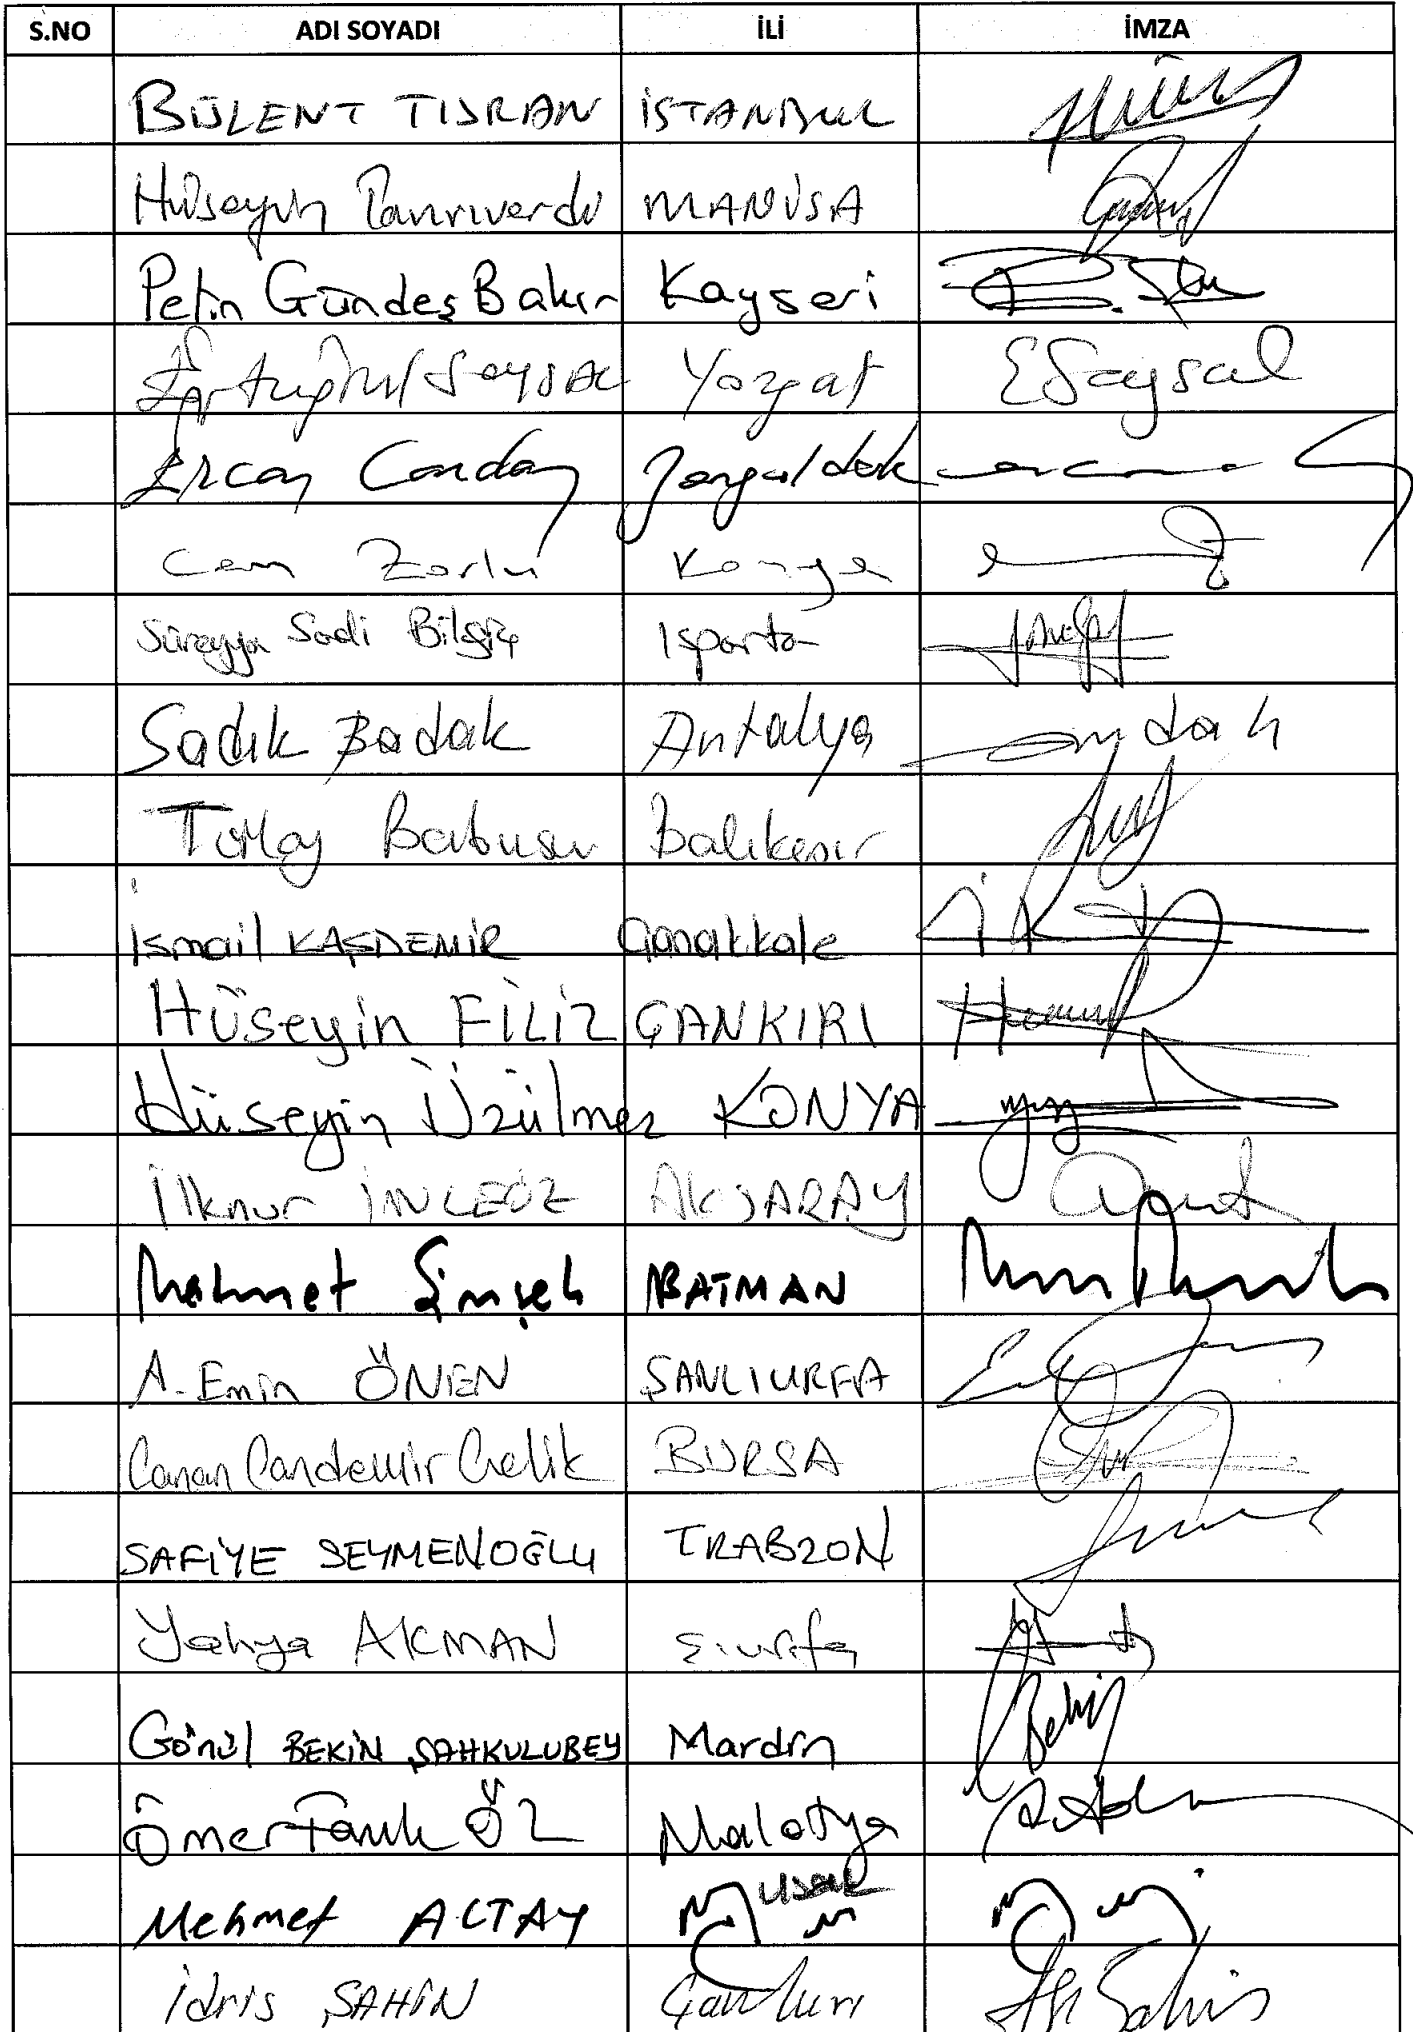 S.NO ADI SOYADI İLİ İMZA
BÜLENT TURAN İSTANBUL
Hüseyin Tanrıverdi MANİSA
Pelin Gündeş Bakır Kayseri
Ertuğrul Soysal Yozgat ESoysal
Ercan Candan Zonguldak
Cem Zorlu Konya
Süreyya Sadi Bilgiç Isparta
Sadık Badak Antalya
Tülay Babuşcu Balıkesir
İsmail KAŞDEMİR Çanakkale
Hüseyin FİLİZ ÇANKIRI
Hüseyin Üzülmez KONYA
İlknur İNCEÖZ AKSARAY
Mehmet Şimşek BATMAN
A. Emin ÖNEN ŞANLIURFA
Canan Candemir Çelik BURSA
SAFİYE SEYMENOĞLU TRABZON
Yahya AKMAN Ş.urfa
Gönül BEKİN ŞAHKULUBEY Mardin
Ömer Faruk ÖZ Malatya
Mehmet ALTAY Uşak
İdris ŞAHİN Çankırı